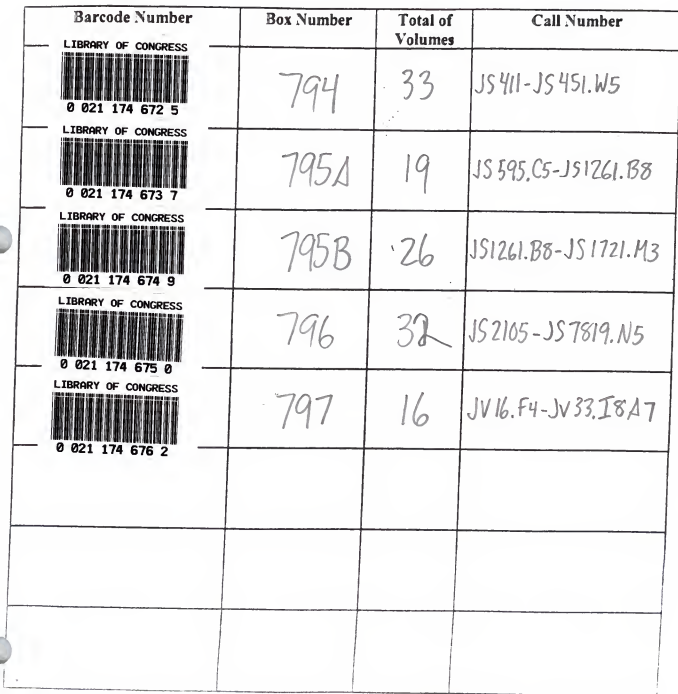 Barcode Number Box Number Total of Volumes Call Number
LIBRARY OF CONGRESS
0 021 174 672 5
794 33 JS 411-JS 451.W5
LIBRARY OF CONGRESS
0 021 174 673 7
795A 19 JS 595.C5-JS1261.B8
LIBRARY OF CONGRESS
0 021 174 674 9
795B 26 JS1261.B8-JS 1721.M3
LIBRARY OF CONGRESS
0 021 174 675 0
796 32 JS 2105-JS 7819.N5
LIBRARY OF CONGRESS
0 021 174 676 2
797 16 JV 16.F4-JV 33.I8A7